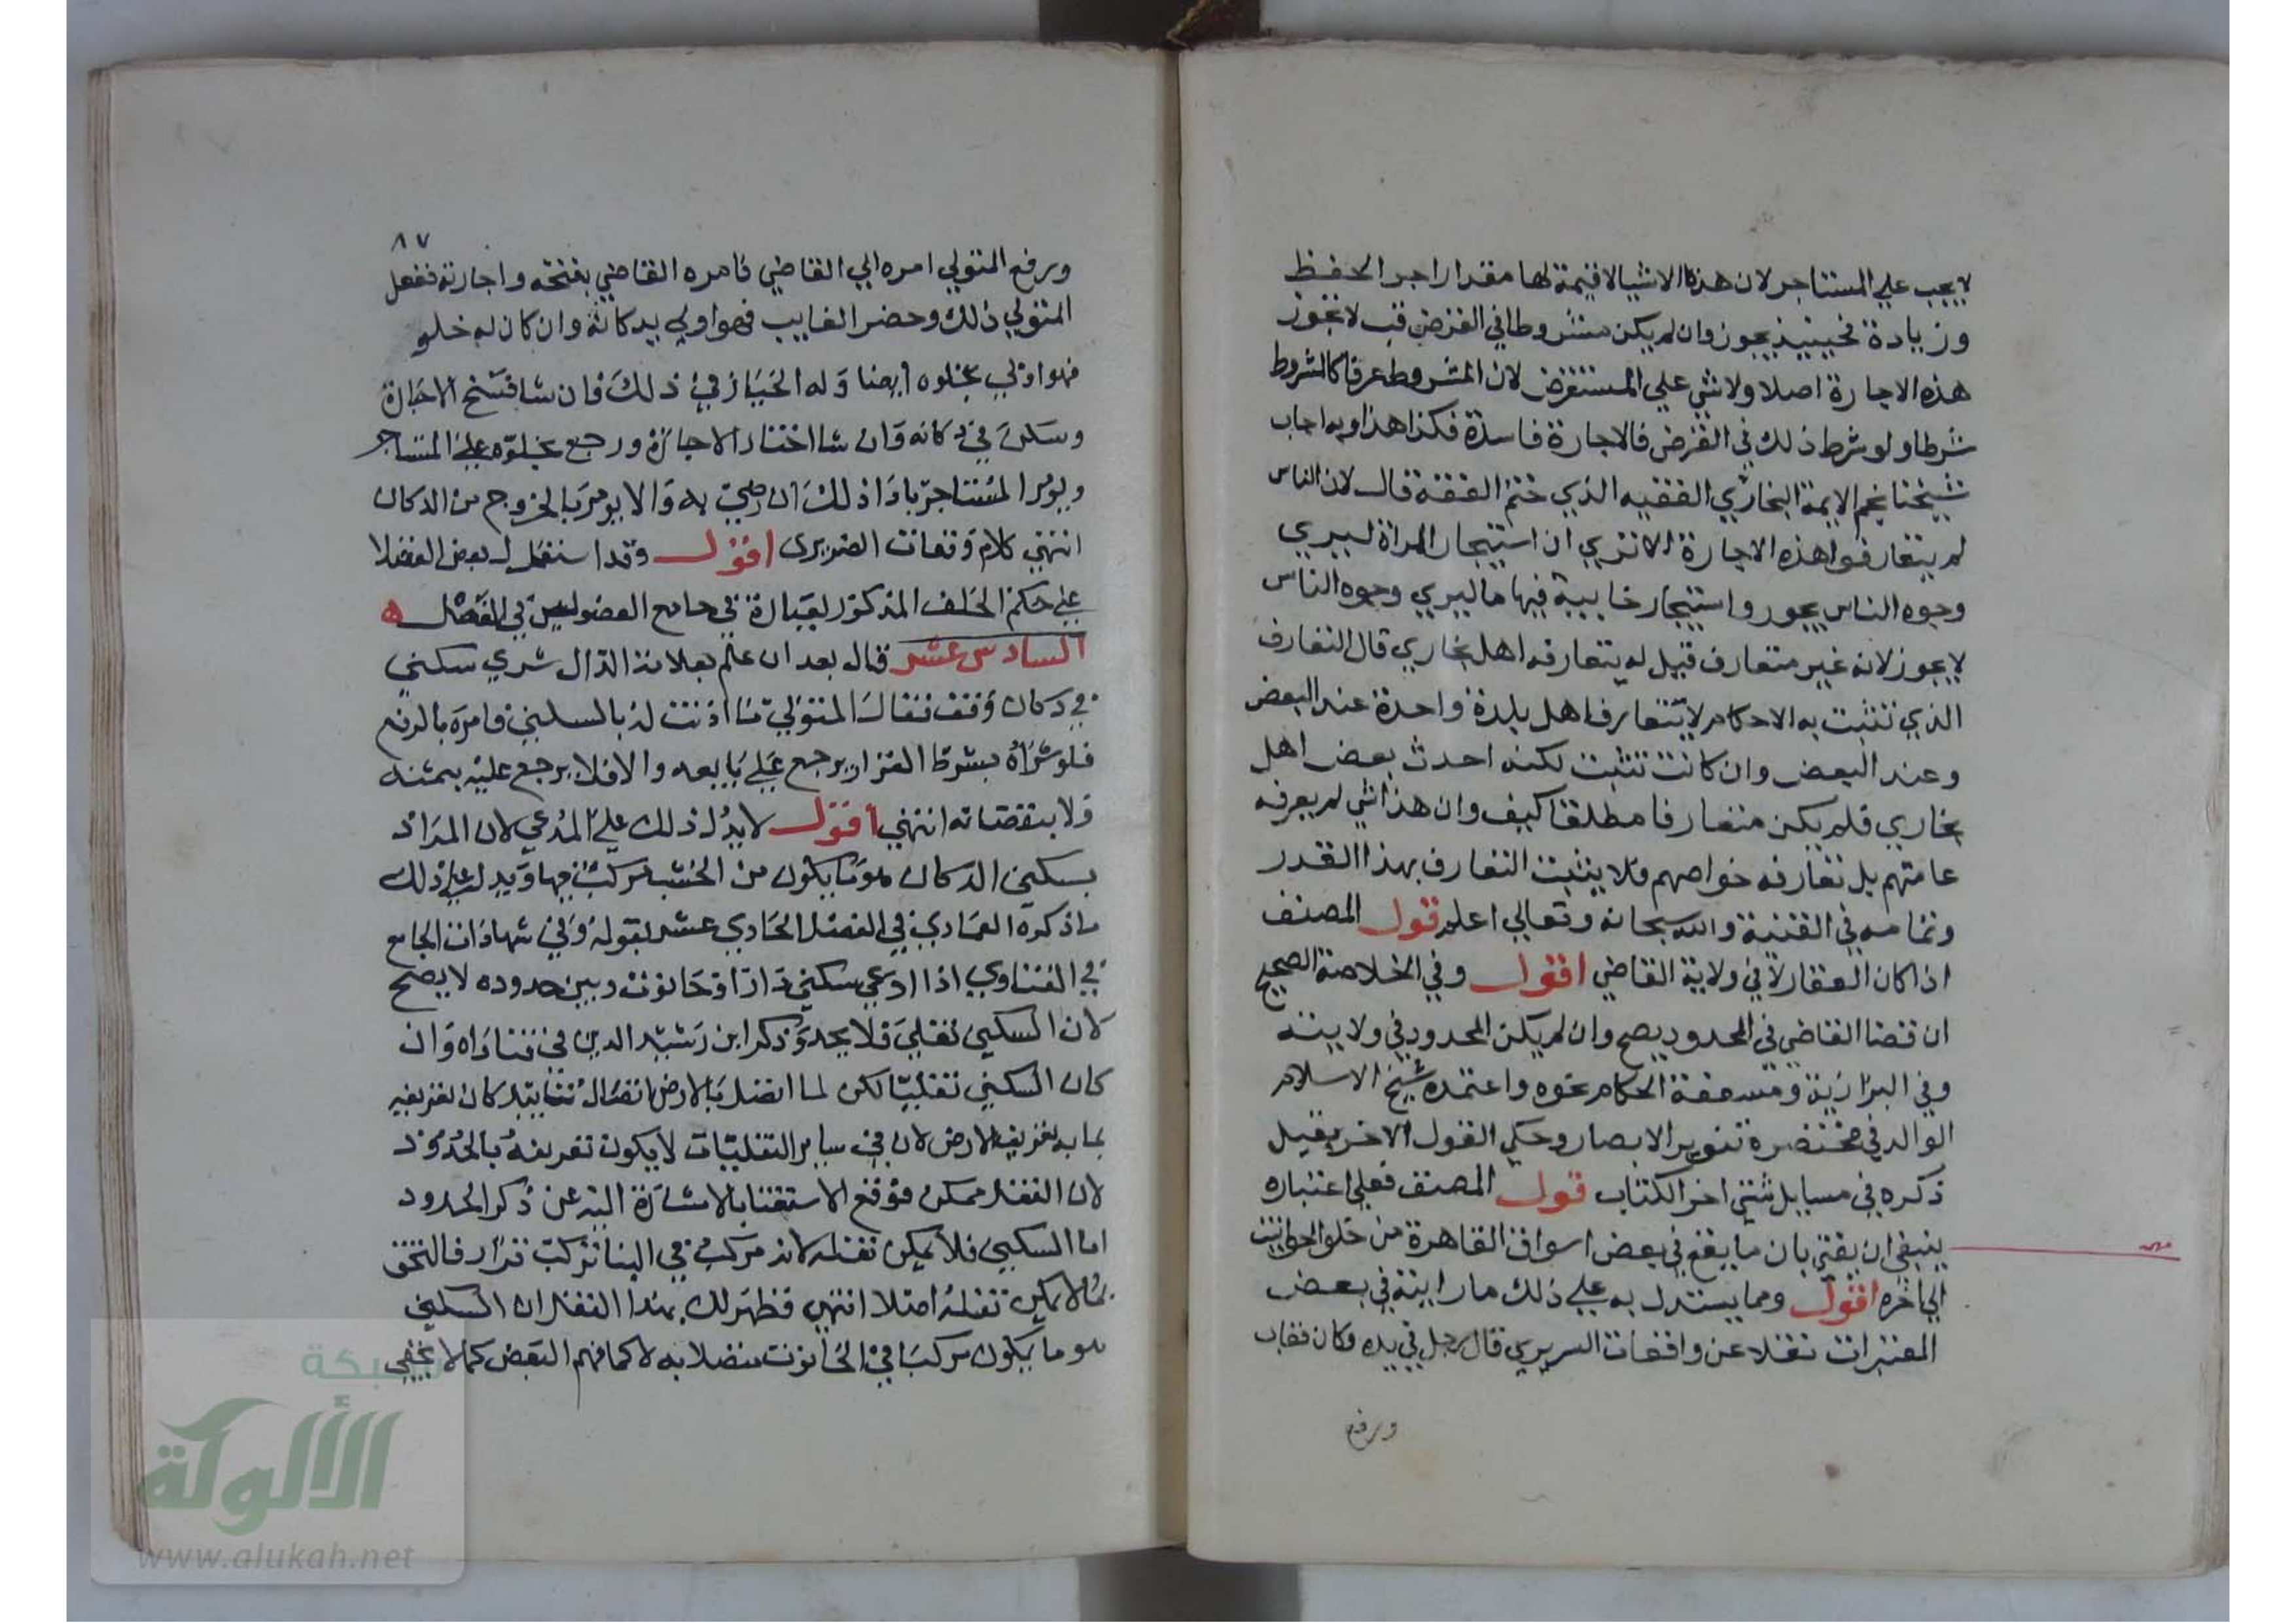 لا يجب علي المستاجر لان هذه الاشيا لا قيمة لها مقدار اجر الحفظ
وزيادة فحينيذ يجوز وان لم يكن مشروطا في القرض قب لا تجوز
هذه الاجارة اصلا ولا شي علي المستقرض لان المشروط عرفا كالمشروط
شرطا ولو شرط ذلك في القرض فالاجارة فاسدة فكذا هذا وبه اجاب
شيخنا نجم الايمة البخاري الفقيه الذي ختم الفقه قال لان الناس
لم يتعارفوا هذه الاجارة الا تري ان استيجار المراة ليري
وجوه الناس يجوز واستيجار خابية فيها ما ليري وجوه الناس
لا يجوز لانه غير متعارف قيل له يتعارفه اهل بخاري قال التعارف
الذي تثبت به الاحكام لا يتعارف اهل بلدة واحدة عند البعض
وعند البعض وان كانت تثبت لكنه احدث بعض اهل
بخاري فلم يكن متعارفا مطلقا كيف وان هذا شي لم يعرفه
عامتهم بل تعارفه خواصهم فلا يثبت التعارف بهذا القدر
وتمامه في القنية والله سبحانه وتعالي اعلم قول المصنف
اذا كان العقار لا في ولاية القاضي اقول وفي الخلاصة الصحيح
ان قضا القاضي في المحدود يصح وان لم يكن المحدود في ولايته
وفي البزازية ومسعفة الحكام نحوه واعتمده شيخ الاسلام
الوالد في مختصره تنوير الابصار وحكي القول الاخر بقيل
ذكره في مسايل شتي اخر الكتاب قول المصنف فعلي اعتباره
ينبغي ان يفتي بان ما يقع في بعض اسواق القاهرة من خلو الحوانيت
الي اخره اقول ومما يستدل به علي ذلك ما رايته في بعض
المعتبرات نقلا عن واقعات السريري قال رجل في يده دكان فغاب
ورفع
٨٧
ورفع المتولي امره الي القاضي فامره القاضي بفتحه واجارته ففعل
المتولي ذلك وحضر الغايب فهو اولي بدكانه وان كان له خلو
فهو اولي بخلوه ايضا وله الخيار في ذلك فان شا فسخ الاجارة
وسكن في دكانه وان شا اختار الاجازة ورجع بخلوه علي المستاجر
ويومر المستاجر باداذلك ان رضي به والا يومر بالخروج من الدكان
انتهي كلام وقعات الضريري اقول وقد استدل بعض الفضلا
علي حكم الخلف المذكور بعبارة في جامع الفصولين في الفصل ه
السادس عشر قال بعد ان علم بعلامة الذال شري سكني
في دكان وقف فقال المتولي ما اذنت له بالسكني فامره بالرفع
فلو شراه بشرط القرار يرجع علي بايعه والا فلا يرجع عليه بثمنه
ولا بنقصانه انتهي اقول لا يدل ذلك علي المدعي لان المراد
بسكني الدكان هو ما يكون من الخشب مركب فيها ويدل علي ذلك
ما ذكره العمادي في الفصل الحادي عشر بقوله وفي شهادات الجامع
في الفتاوي اذا ادعي سكني دارا وحانوت وبين حدوده لا يصح
لان السكني نقلي فلا يحد وذكر ابن رشيد الدين في فتاواه وان
كان السكني نقليا لكن لما اتصل بالارض اتصال تابيد كان تعريفه
بما به تعريف الارض لان في ساير النقليات لا يكون تعريفه بالحدود
لان النقل ممكن فوقع الاستغنا بالاشارة اليه عن ذكر الحدود
اما السكني فلا يمكن نقله لانه مركب في البنا تركب قرار فالتحق
بما لا يمكن نقله اصلا انتهي فظهر لك بهذا النقل ان السكني
هو ما يكون مركبا في الحانوت متصلا به لا كما فهم البعض كما لا يخفي
شبكة
الألوكة
www.alukah.net